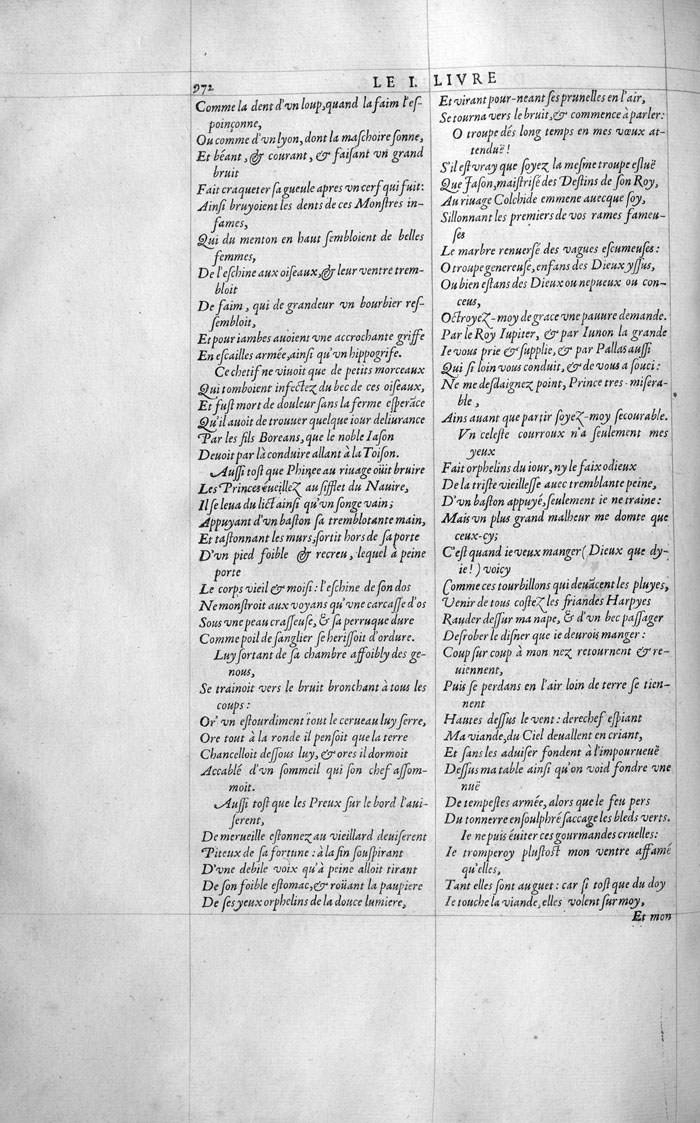 972
LE I. LIVRE
Comme la dent d'vn loup, quand la faim l'eſ-
poinçonne,
Ou comme d'vn lyon, dont la maſchoire ſonne,
Et béant, & courant, & faiſant vn grand
bruit
Fait craqueter ſa gueule apres vn cerf qui fuit:
Ainſi bruyoient les dents de ces Monſtres in-
fames,
Qui du menton en haut ſembloient de belles
femmes,
De l'eſchine aux oiſeaux, & leur ventre trem-
bloit
De faim, qui de grandeur vn bourbier reſ-
ſembloit,
Et pour iambes auoient vne accrochante griffe
En eſcailles armée, ainſi qu'vn hippogrife.
Ce chetif ne viuoit que de petits morceaux
Qui tomboient infectez du bec de ces oiſeaux,
Et fuſt mort de douleur ſans la ferme eſperãce
Qu'il auoit de trouuer quelque iour deliurance
Par les fils Boreans, que le noble Iaſon
Deuoit par là conduire allant à la Toiſon.
Auſſi toſt que Phinée au riuage oüit bruire
Les Princes éueillez au ſifflet du Nauire,
Il ſe leua du lict ainſi qu'vn ſonge vain;
Appuyant d'vn baſton ſa tremblotante main,
Et taſtonnant les murs, ſortit hors de ſa porte
D'vn pied foible & recreu, lequel à peine
porte
Le corps vieil & moiſi: l'eſchine de ſon dos
Ne monſtroit aux voyans qu'vne carcaſſe d'os
Sous vne peau craſſeuſe, & ſa perruque dure
Comme poil de ſanglier ſe heriſſoit d'ordure.
Luy ſortant de ſa chambre affoibly des ge-
nous,
Se trainoit vers le bruit bronchant à tous les
coups:
Or' vn eſtourdiment tout le cerueau luy ſerre,
Ore tout à la ronde il penſoit que la terre
Chancelloit deſſous luy, & ores il dormoit
Accablé d'vn ſommeil qui ſon chef aſſom-
moit.
Auſſi toſt que les Preux ſur le bord l'aui-
ſerent,
De merueille eſtonnez au vieillard deuiſerent
Piteux de ſa fortune: à la fin ſouſpirant
D'vne debile voix qu'à peine alloit tirant
De ſon foible eſtomac, & roüant la paupiere
De ſes yeux orphelins de la douce lumiere,
Et virant pour-neant ſes prunelles en l'air,
Se tourna vers le bruit, & commence à parler:
O troupe dés long temps en mes vœux at-
tenduë!
S'il eſt vray que ſoyez la meſme troupe eſluë
Que Jaſon, maiſtriſé des Deſtins de ſon Roy,
Au riuage Colchide emmene auecque ſoy,
Sillonnant les premiers de vos rames fameu-
ſes
Le marbre renuerſé des vagues eſcumeuſes:
O troupe genereuſe, enfans des Dieux yſſus,
Ou bien eſtans des Dieux ou nepueux ou con-
ceus,
Octroyez-moy de grace vne pauure demande.
Par le Roy Iupiter, & par Iunon la grande
Ie vous prie & ſupplie, & par Pallas auſſi
Qui ſi loin vous conduit, & de vous a ſouci:
Ne me deſdaignez point, Prince tres-miſera-
ble,
Ains auant que partir ſoyez-moy ſecourable.
Vn celeſte courroux n'a ſeulement mes
yeux
Fait orphelins du iour, ny le faix odieux
De la triſte vieilleſſe auec tremblante peine,
D'vn baſton appuyé, ſeulement ie ne traine:
Mais vn plus grand malheur me domte que
ceux-cy;
C'eſt quand ie veux manger (Dieux que dy-
ie!) voicy
Comme ces tourbillons qui deuãcent les pluyes,
Venir de tous coſtez les friandes Harpyes
Rauder deſſur ma nape, & d'vn bec paſſager
Deſrober le diſner que ie deurois manger:
Coup ſur coup à mon nez retournent & re-
uiennent,
Puis ſe perdans en l'air loin de terre ſe tien-
nent
Hautes deſſus le vent: derechef eſpiant
Ma viande, du Ciel deuallent en criant,
Et ſans les aduiſer fondent à l'impourueuë
Deſſus ma table ainſi qu'on void fondre vne
nuë
De tempeſtes armée, alors que le feu pers
Du tonnerre enſoulphré ſaccage les bleds verts.
Ie ne puis éuiter ces gourmandes cruelles:
Ie tromperoy pluſtoſt mon ventre affamé
qu'elles,
Tant elles ſont au guet: car ſi toſt que du doy
Ie touche la viande, elles volent ſur moy,
Et mon